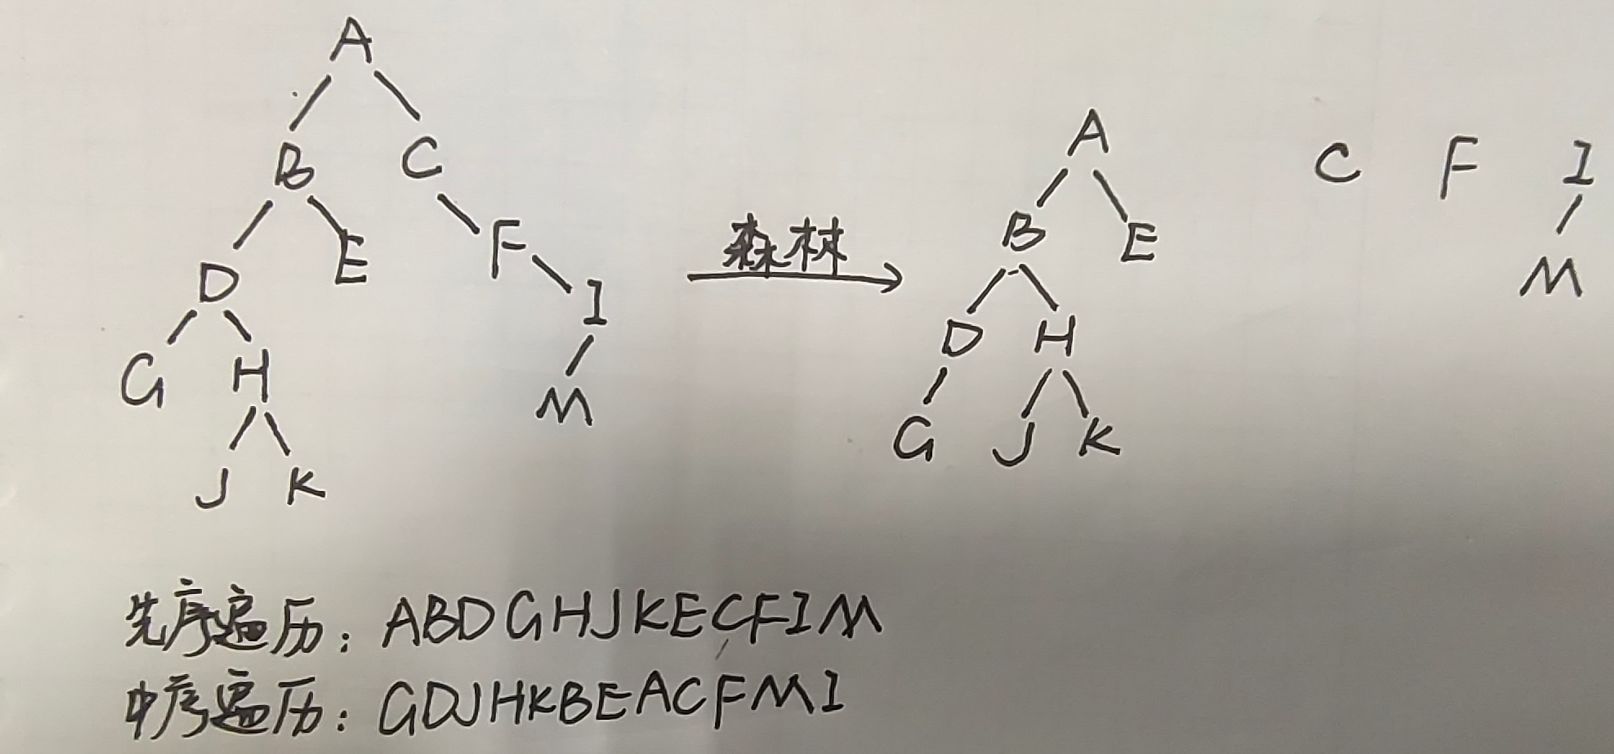 A
B C
D E F
G H I
J K M
森林
A
B E
D H
G J K
C F I
M
先序遍历：ABDGHJKECFIM
中序遍历：GDJHKBEACFMI